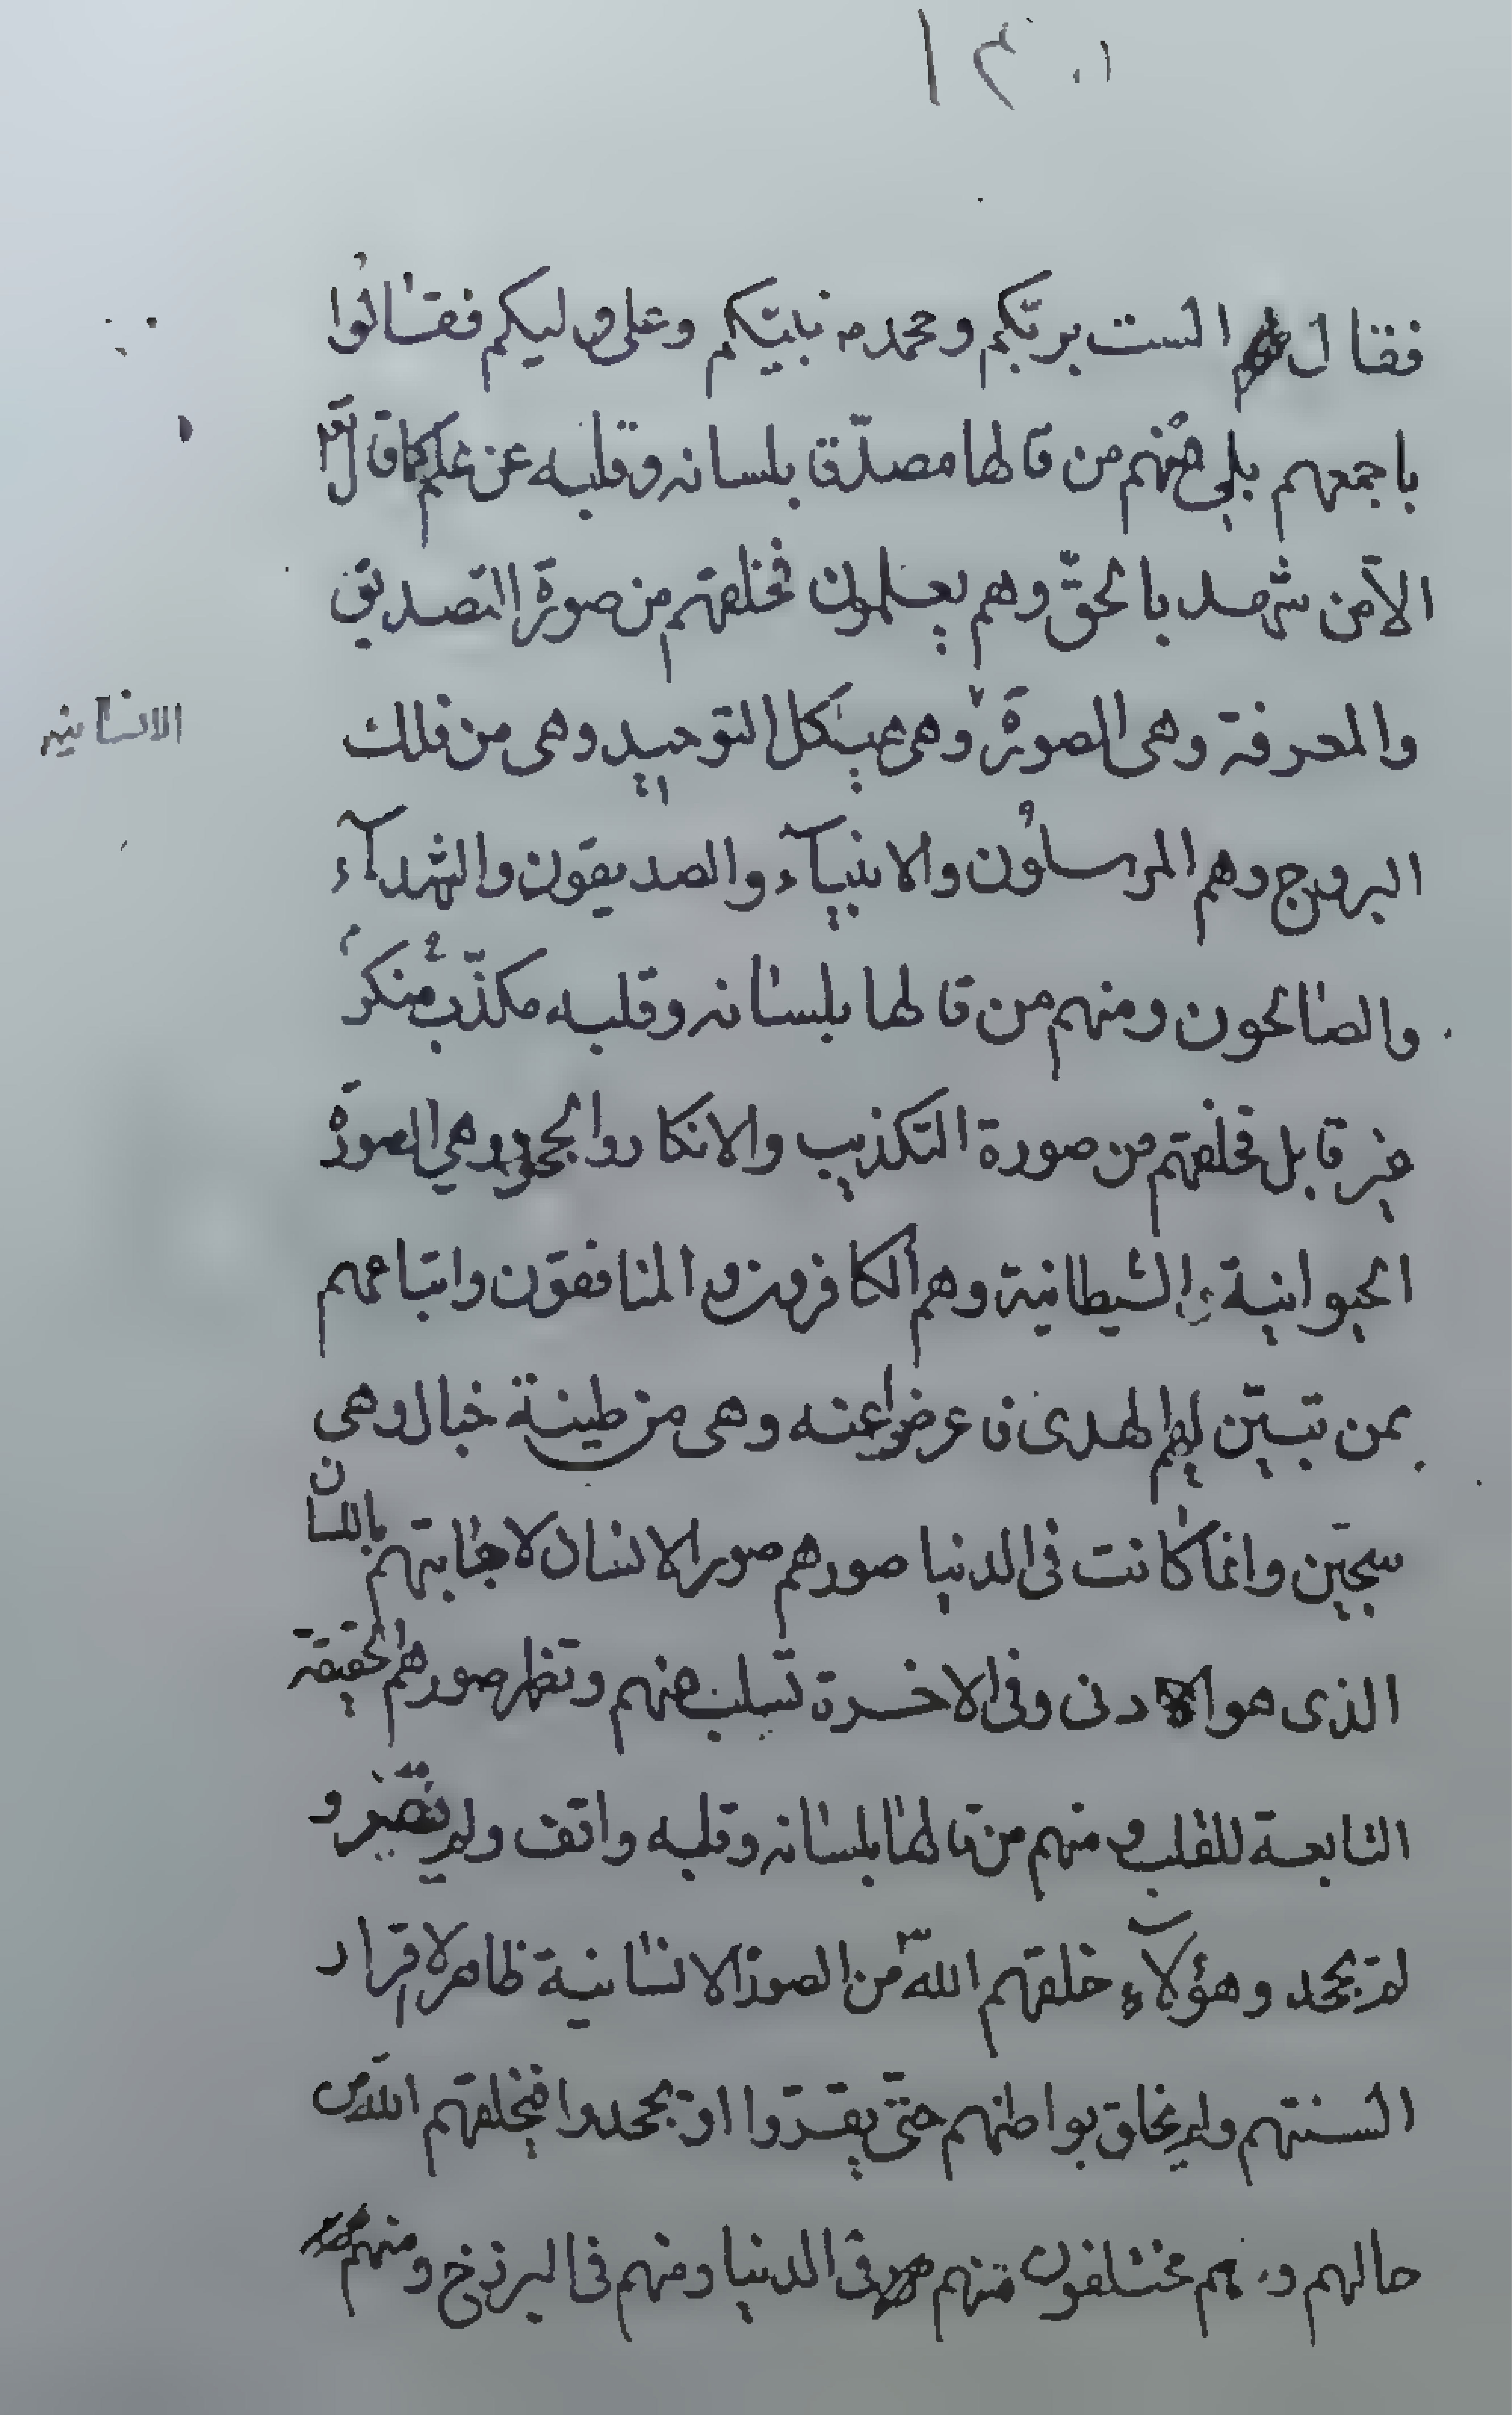 فقال لهم الست بربّكم ومحمد ص نبيّكم وعلى وليكم فقالوا
باجمعهم بلى فمنهم من قالها مصدّقا بلسانه وقلبه عن علم كما قال تعالى
الا من شهد بالحقّ وهم يعلمون فخلقهم من صورة التصديق
والمعرفة وهى الصورة وهى هيكل التوحيد وهى من فلك
الانسانية
البروج وهم المرسلون والانبيآء والصديقون والشهدآء
والصالحون ومنهم من قالها بلسانه وقلبه مكذّب منكر
غير قابل فخلقهم من صورة التكذيب والانكار والجحود وهي الصورة
الحيوانية والشيطانية وهم الكافرون والمنافقون واتباعهم
ممن تبيّن لهم الهدى فاعرضوا عنه وهى من طينة خبال وهى
سجّين وانما كانت فى الدنيا صورهم صور الانسان لاجابتهم باللسان
الذى هو الادنى وفى الاخرة تسلب منهم وتظهر صورهم الحقيقة
التابعة للقلب ومنهم من قالها بلسانه وقلبه واقف ولم يقر و
لم يجحد وهؤلآء خلقهم اللّه من الصورة الانسانية ظاهر لاقرار
السنتهم ولم يخلق بواطنهم حتّى يقرّوا او يجحدوا فيخلقهم اللّه من
حالهم و هم مختلفون منهم فى الدنيا ومنهم فى البرزخ ومنهم